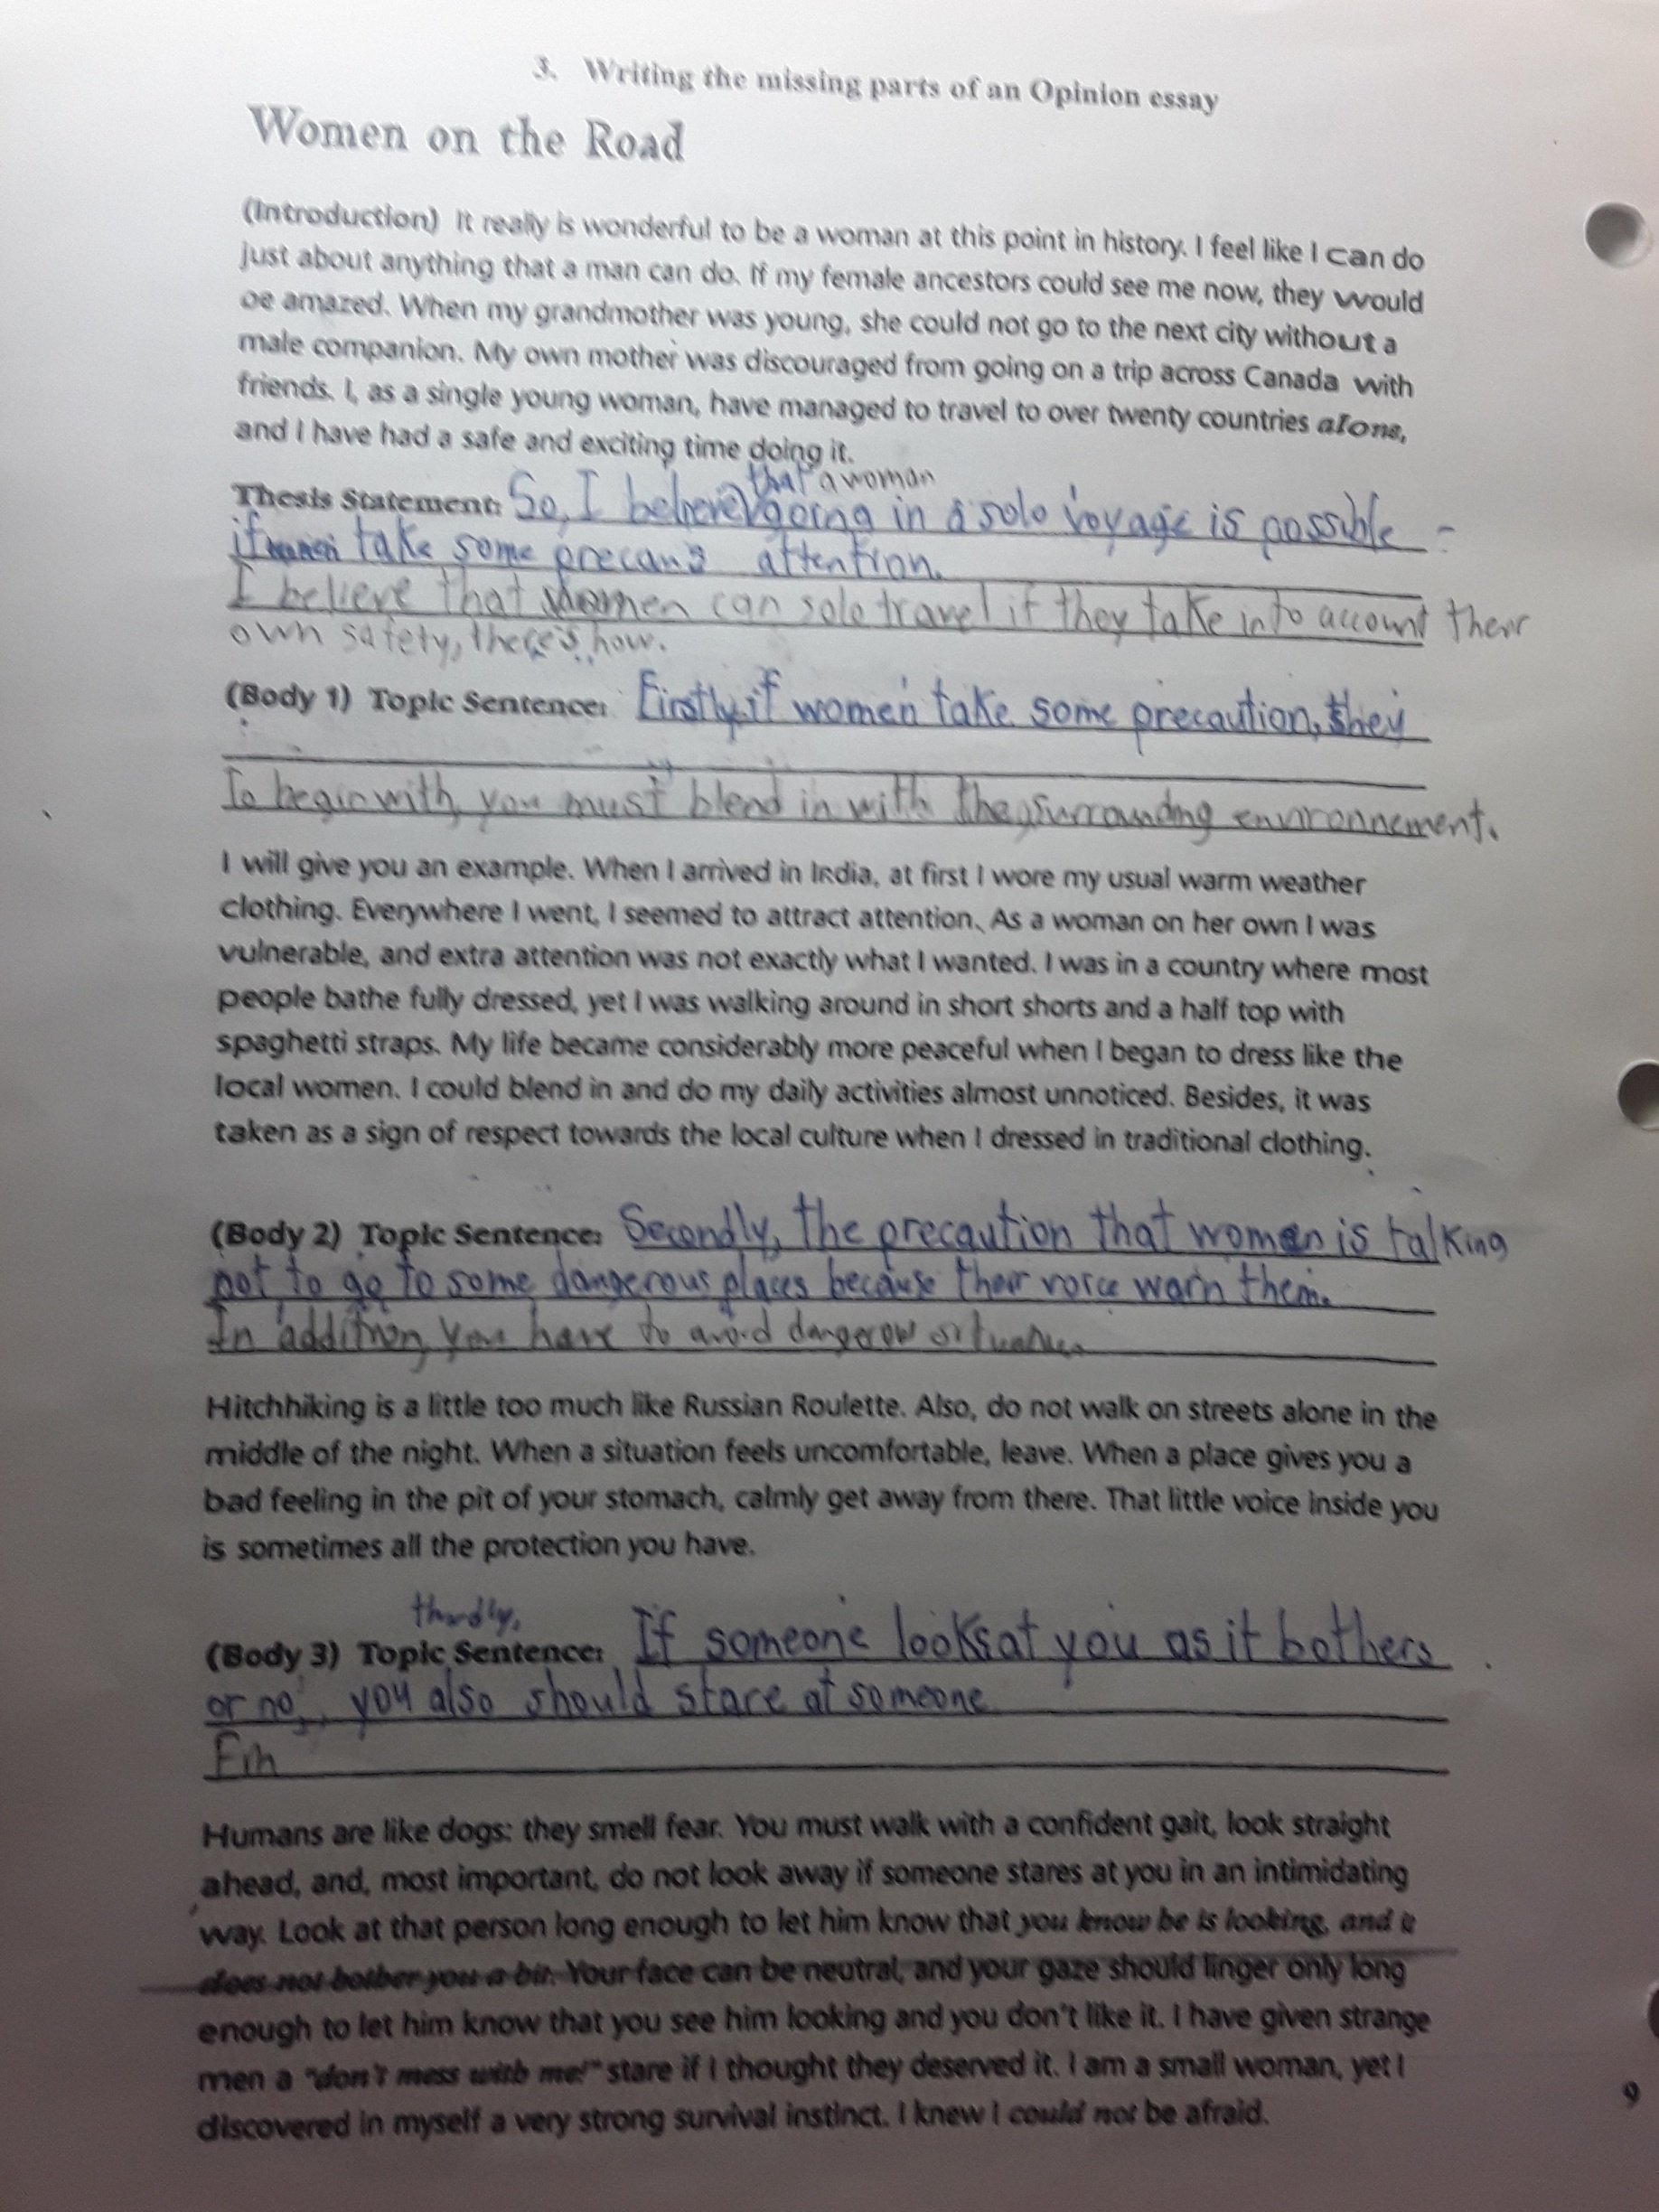 3. Writing the missing parts of an Opinion essay
Women on the Road
(Introduction) It really is wonderful to be a woman at this point in history. I feel like I can do
just about anything that a man can do. If my female ancestors could see me now, they would
be amazed. When my grandmother was young, she could not go to the next city without a
male companion. My own mother was discouraged from going on a trip across Canada with
friends. I, as a single young woman, have managed to travel to over twenty countries alone,
and I have had a safe and exciting time doing it.
that a woman
Thesis Statement: So, I believe going in a solo voyage is possible
if women take some attention.
I believe that women can solo travel if they take into account their
own safety, there's how.
(Body 1) Topic Sentence: Firstly, if women take some precaution, they
To begin with, you must blend in with the surrounding environnement.
I will give you an example. When I arrived in India, at first I wore my usual warm weather
clothing. Everywhere I went, I seemed to attract attention. As a woman on her own I was
vulnerable, and extra attention was not exactly what I wanted. I was in a country where most
people bathe fully dressed, yet I was walking around in short shorts and a half top with
spaghetti straps. My life became considerably more peaceful when I began to dress like the
local women. I could blend in and do my daily activities almost unnoticed. Besides, it was
taken as a sign of respect towards the local culture when I dressed in traditional clothing.
(Body 2) Topic Sentence: Secondly, the precaution that women is talking
not to go to some dangerous places because their voice warn them.
In addition, you have to avoid dangerous situation.
Hitchhiking is a little too much like Russian Roulette. Also, do not walk on streets alone in the
middle of the night. When a situation feels uncomfortable, leave. When a place gives you a
bad feeling in the pit of your stomach, calmly get away from there. That little voice inside you
is sometimes all the protection you have.
thirdly,
(Body 3) Topic Sentence: If someone looks at you as it bothers
or no, you also should stare at someone
Fin
Humans are like dogs: they smell fear. You must walk with a confident gait, look straight
ahead, and, most important, do not look away if someone stares at you in an intimidating
way. Look at that person long enough to let him know that you know he is looking, and it
does not bother you a bit. Your face can be neutral, and your gaze should linger only long
enough to let him know that you see him looking and you don't like it. I have given strange
men a "don't mess with me!" stare if I thought they deserved it. I am a small woman, yet I
discovered in myself a very strong survival instinct. I knew I could not be afraid.
9